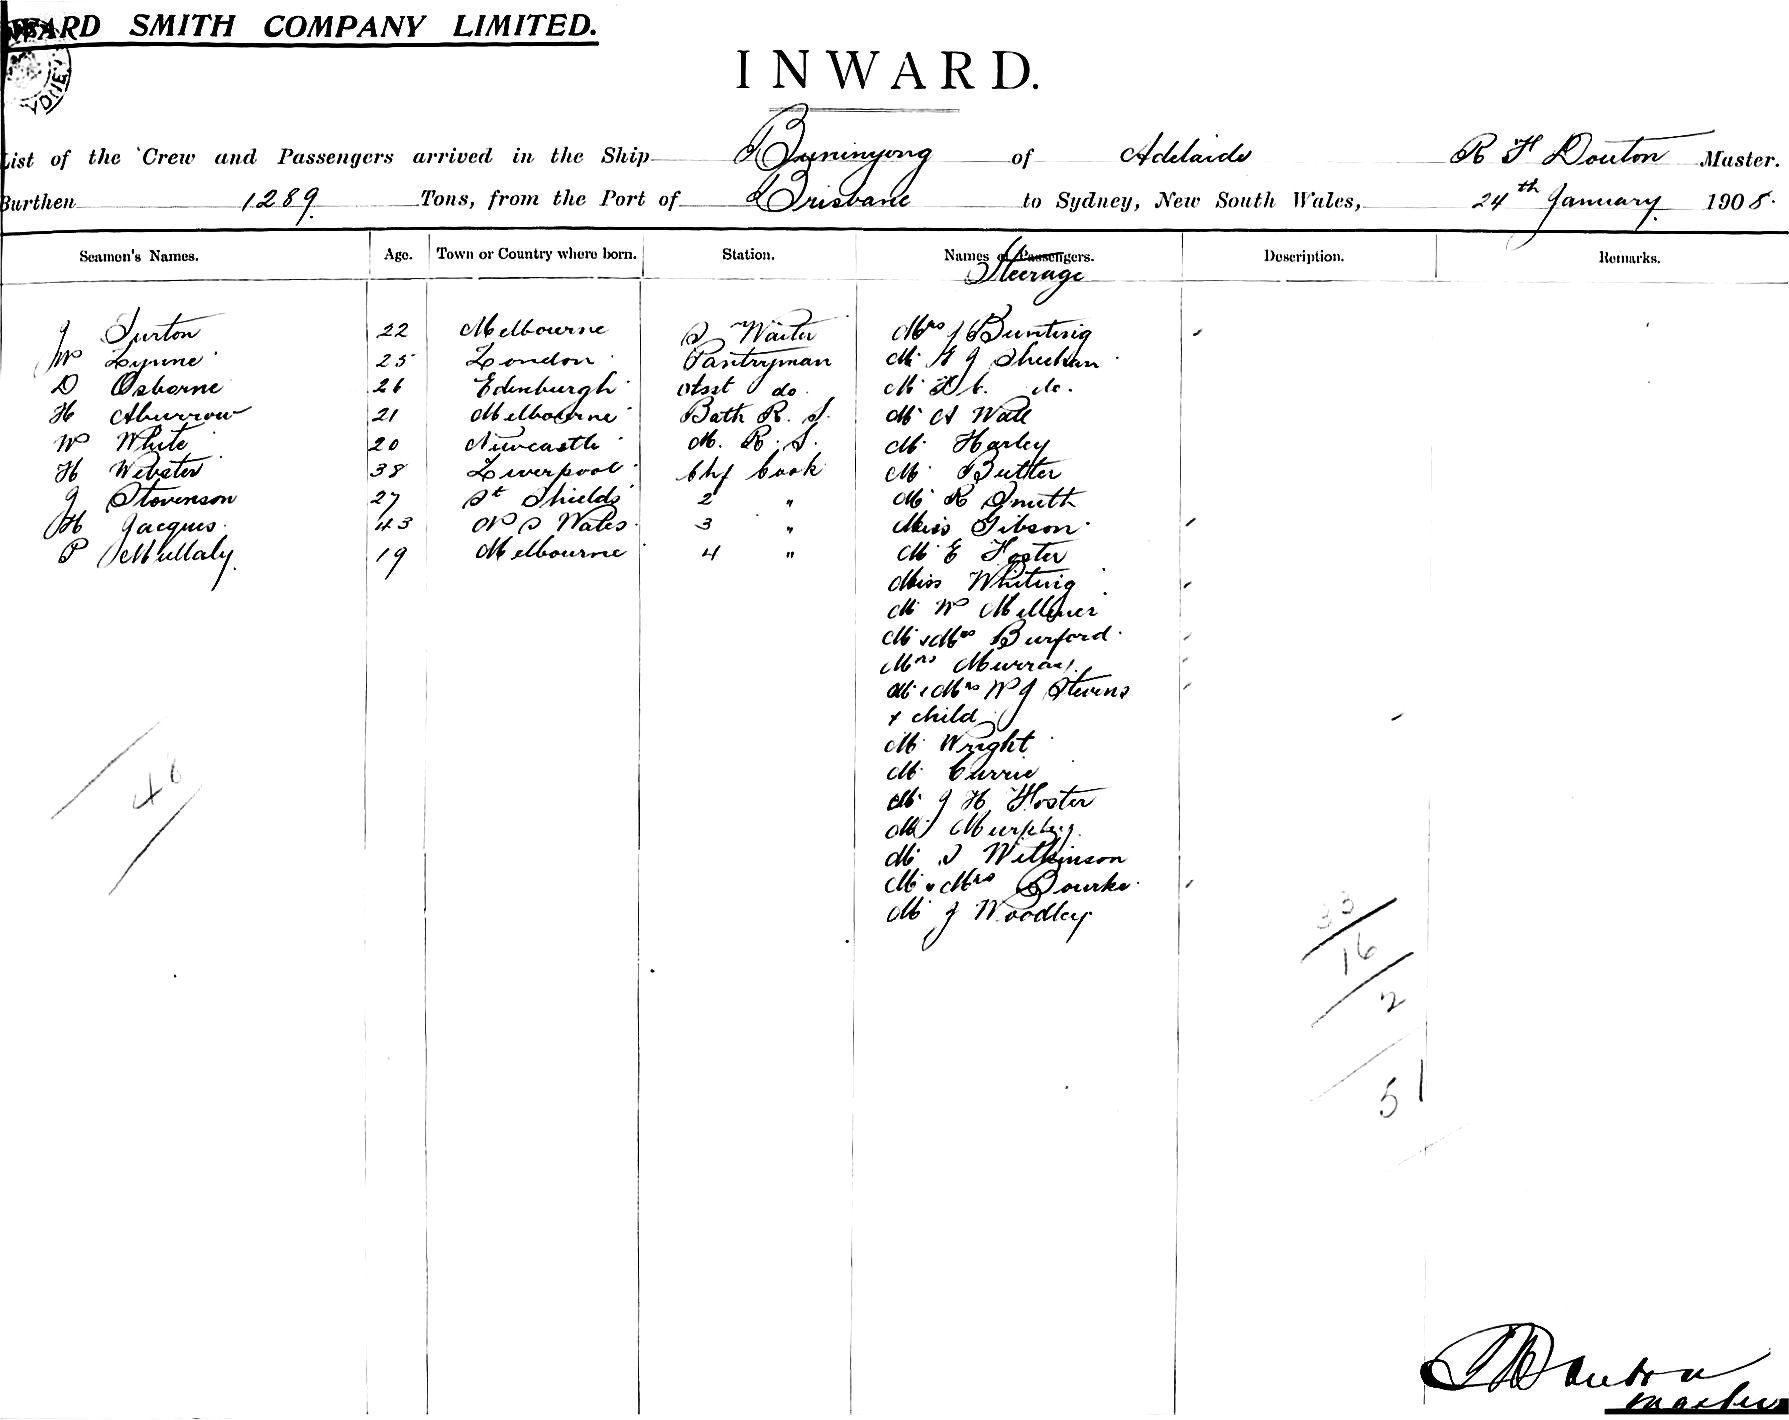 WARD SMITH COMPANY LIMITED.
INWARD.
List of the Crew and Passengers arrived in the Ship Buninyong of Adelaide R H Douton Master.
Burthen 1289 Tons, from the Port of Brisbane to Sydney, New South Wales, 24th January 1908.
Seamen's Names. Age. Town or Country where born. Station. Names of Passengers. Description. Remarks.
Steerage
J Turton 22 Melbourne S Waiter Mrs J Bunting
W Lynne 25 London Pantryman Mr G J Sheehan
D Osborne 26 Edinburgh Asst do Mr do.
H Aburrow 21 Melbourne Bath R. S. Mr A Wall
W White 20 Newcastle M. R. S. Mr Harley
H Webster 38 Liverpool Chf Cook Mr Butler
J Stevenson 27 St Shields 2 " Mr R Smith
H Jacques 43 N S Wales 3 " Miss Gibson
P Mullaly 19 Melbourne 4 " Mr E Foster
Miss Whiting
Mr W Milliner
Mr & Mrs Burford
Mrs Murray
Mr & Mrs W J Stevens
& child
Mr Wright
Mr Currie
Mr J H Foster
Mr Murphy
Mr S Wilkinson
Mr & Mrs Bourke
Mr J Woodley
33
16
2
51
Douton
Master